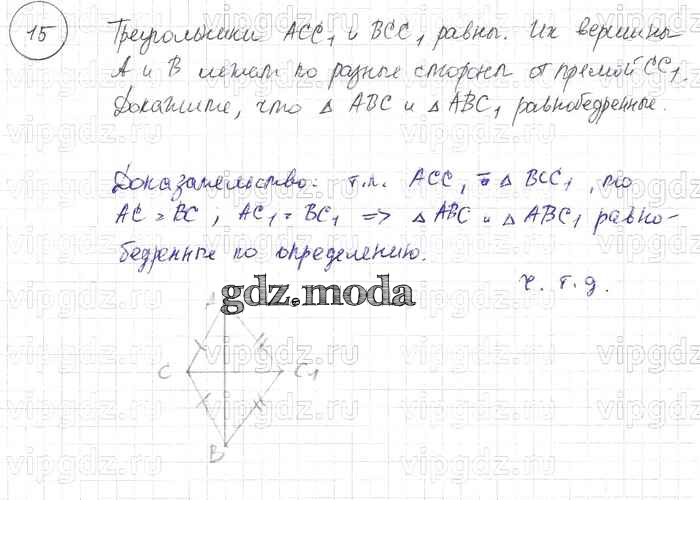 15
Треугольники ACC₁ и BCC₁ равны. Их вершины
A и B лежат по разные стороны от прямой CC₁.
Докажите, что △ ABC и △ ABC₁ равнобедренные.
Доказательство: т.к. ACC₁ = △ BCC₁, то
AC = BC; AC₁ = BC₁ => △ ABC и △ ABC₁ равно-
бедренные по определению.
ч. т. д.
gdz.moda
C
C₁
B
vipgdz.ru